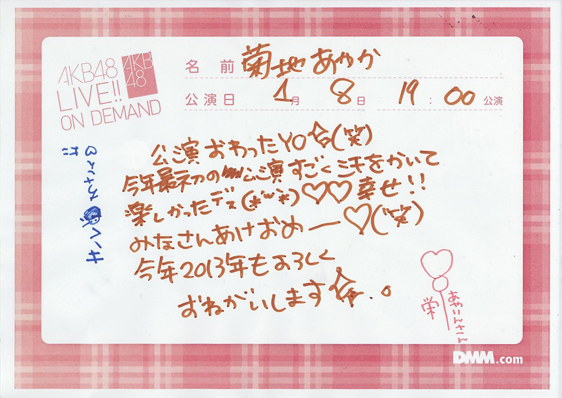 AKB48
LIVE!!
ON DEMAND
AKB
48
名 前 菊地あやか
公演日 1月 8日 19:00公演
公演おわったYO☆(笑)
今年最初の公演すごく汗をかいて
楽しかったデス(*´ｰ`*)♡♡幸せ!!
みなさんあけおめー♡(笑)
今年2013年もよろしく
おねがいします☆。
DMM.com